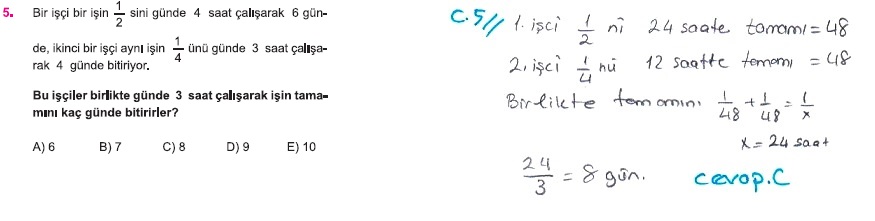 5. Bir işçi bir işin 1/2 sini günde 4 saat çalışarak 6 gün-
de, ikinci bir işçi aynı işin 1/4 ünü günde 3 saat çalışa-
rak 4 günde bitiriyor.
Bu işçiler birlikte günde 3 saat çalışarak işin tama-
mını kaç günde bitirirler?
A) 6 B) 7 C) 8 D) 9 E) 10
C.5// 1. işci 1/2 ni 24 saate tamamı = 48
2. işci 1/4 nü 12 saatte tamamı = 48
Birlikte tamamını 1/48 + 1/48 = 1/x
x = 24 saat
24/3 = 8 gün. cevap.C